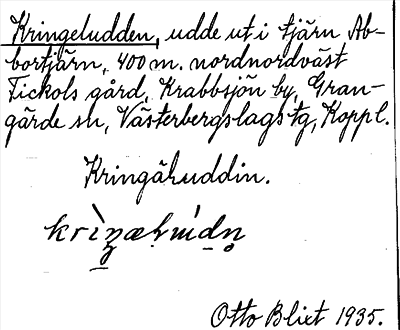 Kringeludden, udde ut i tjärn Ab-
bortjärn, 400 m. nordnordväst
Fickols gård, Krabbsjön by, Gran-
gärde sn, Västerbergslags tg, Koppl.
Kringähuddin.
Otto Blixt 1935.